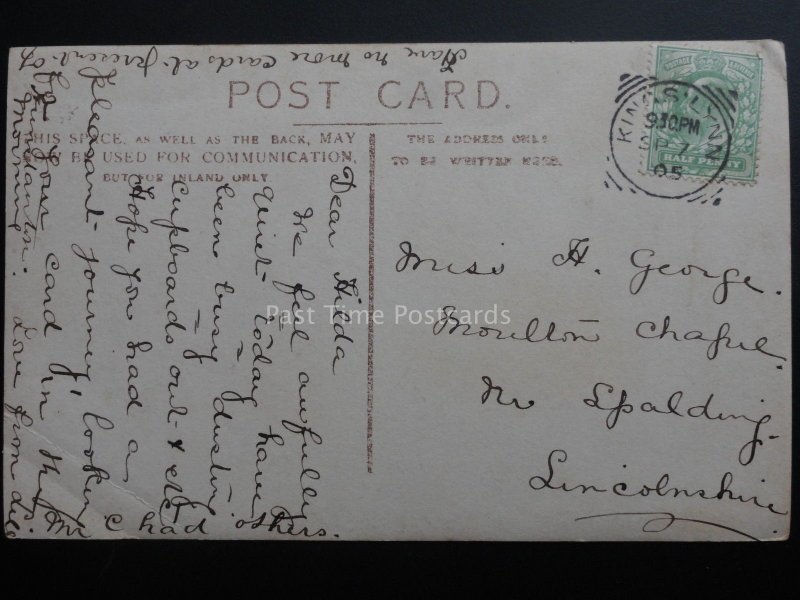 Have no more cards at present of
POST CARD.
THIS SPACE, AS WELL AS THE BACK, MAY
NOW BE USED FOR COMMUNICATION,
BUT FOR INLAND ONLY.
THE ADDRESS ONLY
TO BE WRITTEN HERE.
KING'S LYNN
930PM
SP 7
05
HALF PENNY
Dear Hilda
We feel awfully
quiet today have
been busy dusting
cupboards out & etc
Hope you had a
pleasant journey, looking
for your card in the
morning. Love from
c had others.
Miss H. George.
Moulton Chapel.
Nr Spalding.
Lincolnshire.
Past Time Postcards